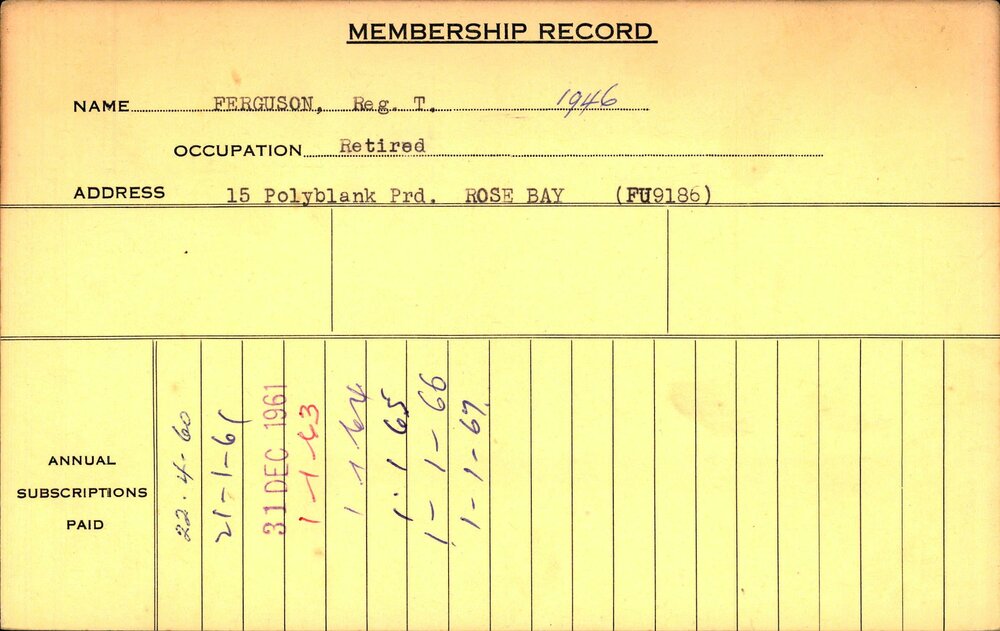 MEMBERSHIP RECORD
NAME FERGUSON, Reg. T. 1946
OCCUPATION Retired
ADDRESS 15 Polyblank Prd. ROSE BAY (FU9186)
ANNUAL
SUBSCRIPTIONS
PAID
22.4-60
21-1-61
31 DEC 1961
1-1-63
1 1 64
1.1 65
1-1-66
1-1-67.